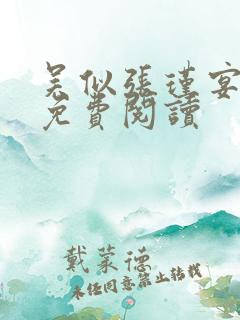 吴似張瑾宴
免費閱讀
戴萊德
未经同意禁止转载